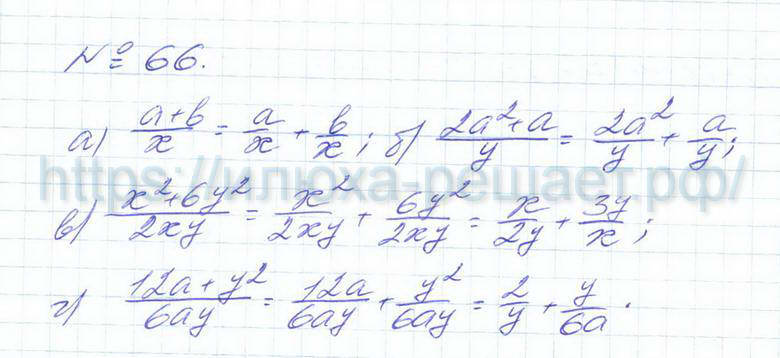 № 66.
а) (a+b)/x = a/x + b/x; б) (2a²+a)/y = 2a²/y + a/y;
https://илюха-решает.рф/
в) (x²+6y²)/(2xy) = x²/(2xy) + 6y²/(2xy) = x/(2y) + 3y/x;
г) (12a+y²)/(6ay) = 12a/(6ay) + y²/(6ay) = 2/y + y/(6a).